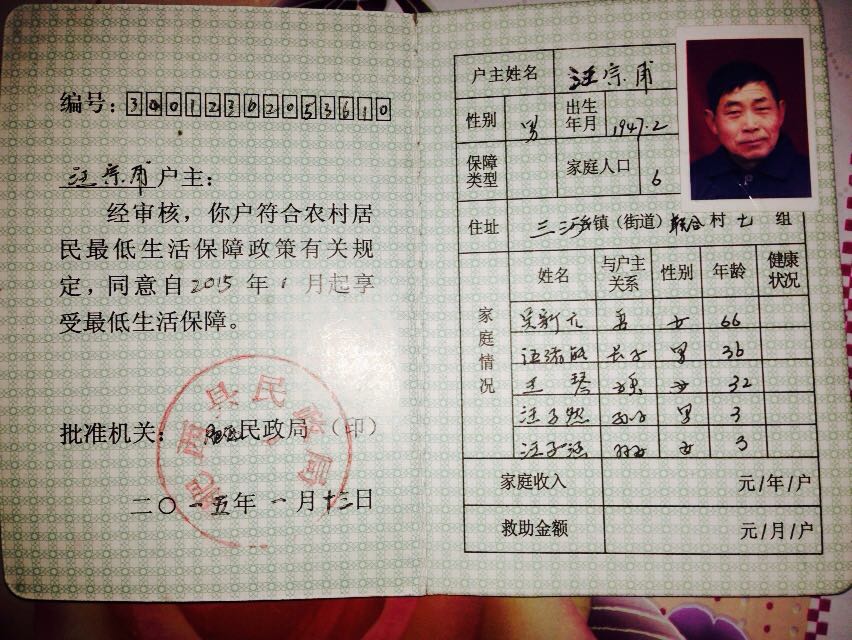 编号：34012302053610
汪宗甫户主：
经审核，你户符合农村居
民最低生活保障政策有关规
定，同意自2015年1月起享
受最低生活保障。
批准机关：民政局（印）
肥西县民政局
二〇一五年一月十三日
户主姓名 汪宗甫
性别 男 出生年月 1947.2
保障类型 家庭人口 6
住址 三河乡镇（街道）联合村七组
家庭情况
姓名 与户主关系 性别 年龄 健康状况
女 66
长子 男 36
王琴 女 32
汪子然 孙子 男 3
汪子涵 孙女 女 3
家庭收入 元/年/户
救助金额 元/月/户